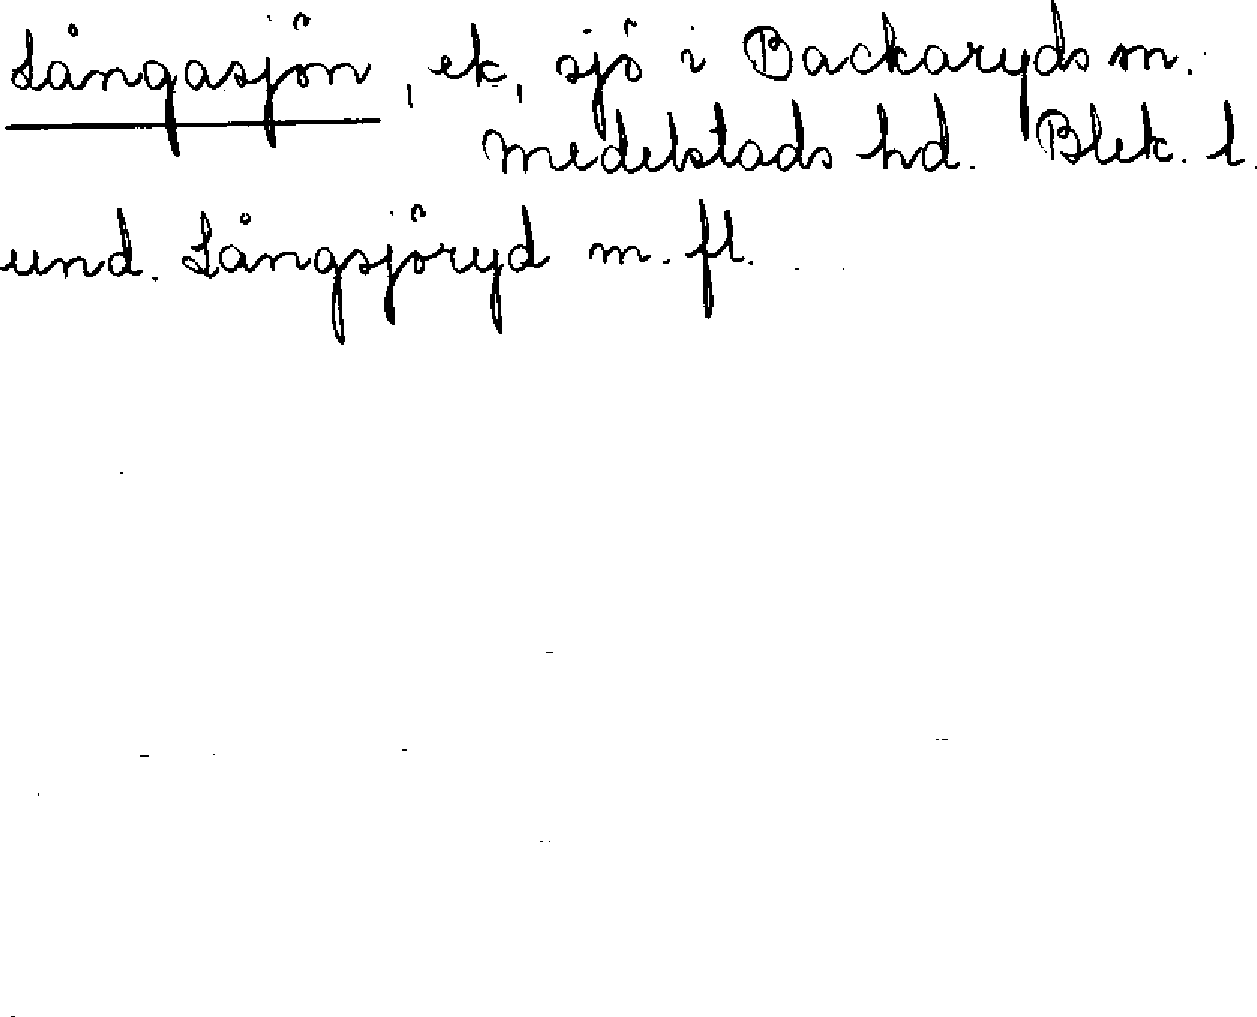 Långasjön, ek, sjö i Backaryds sn.
Medelstads hd. Blek. l.
und. Långsjöryd m. fl.